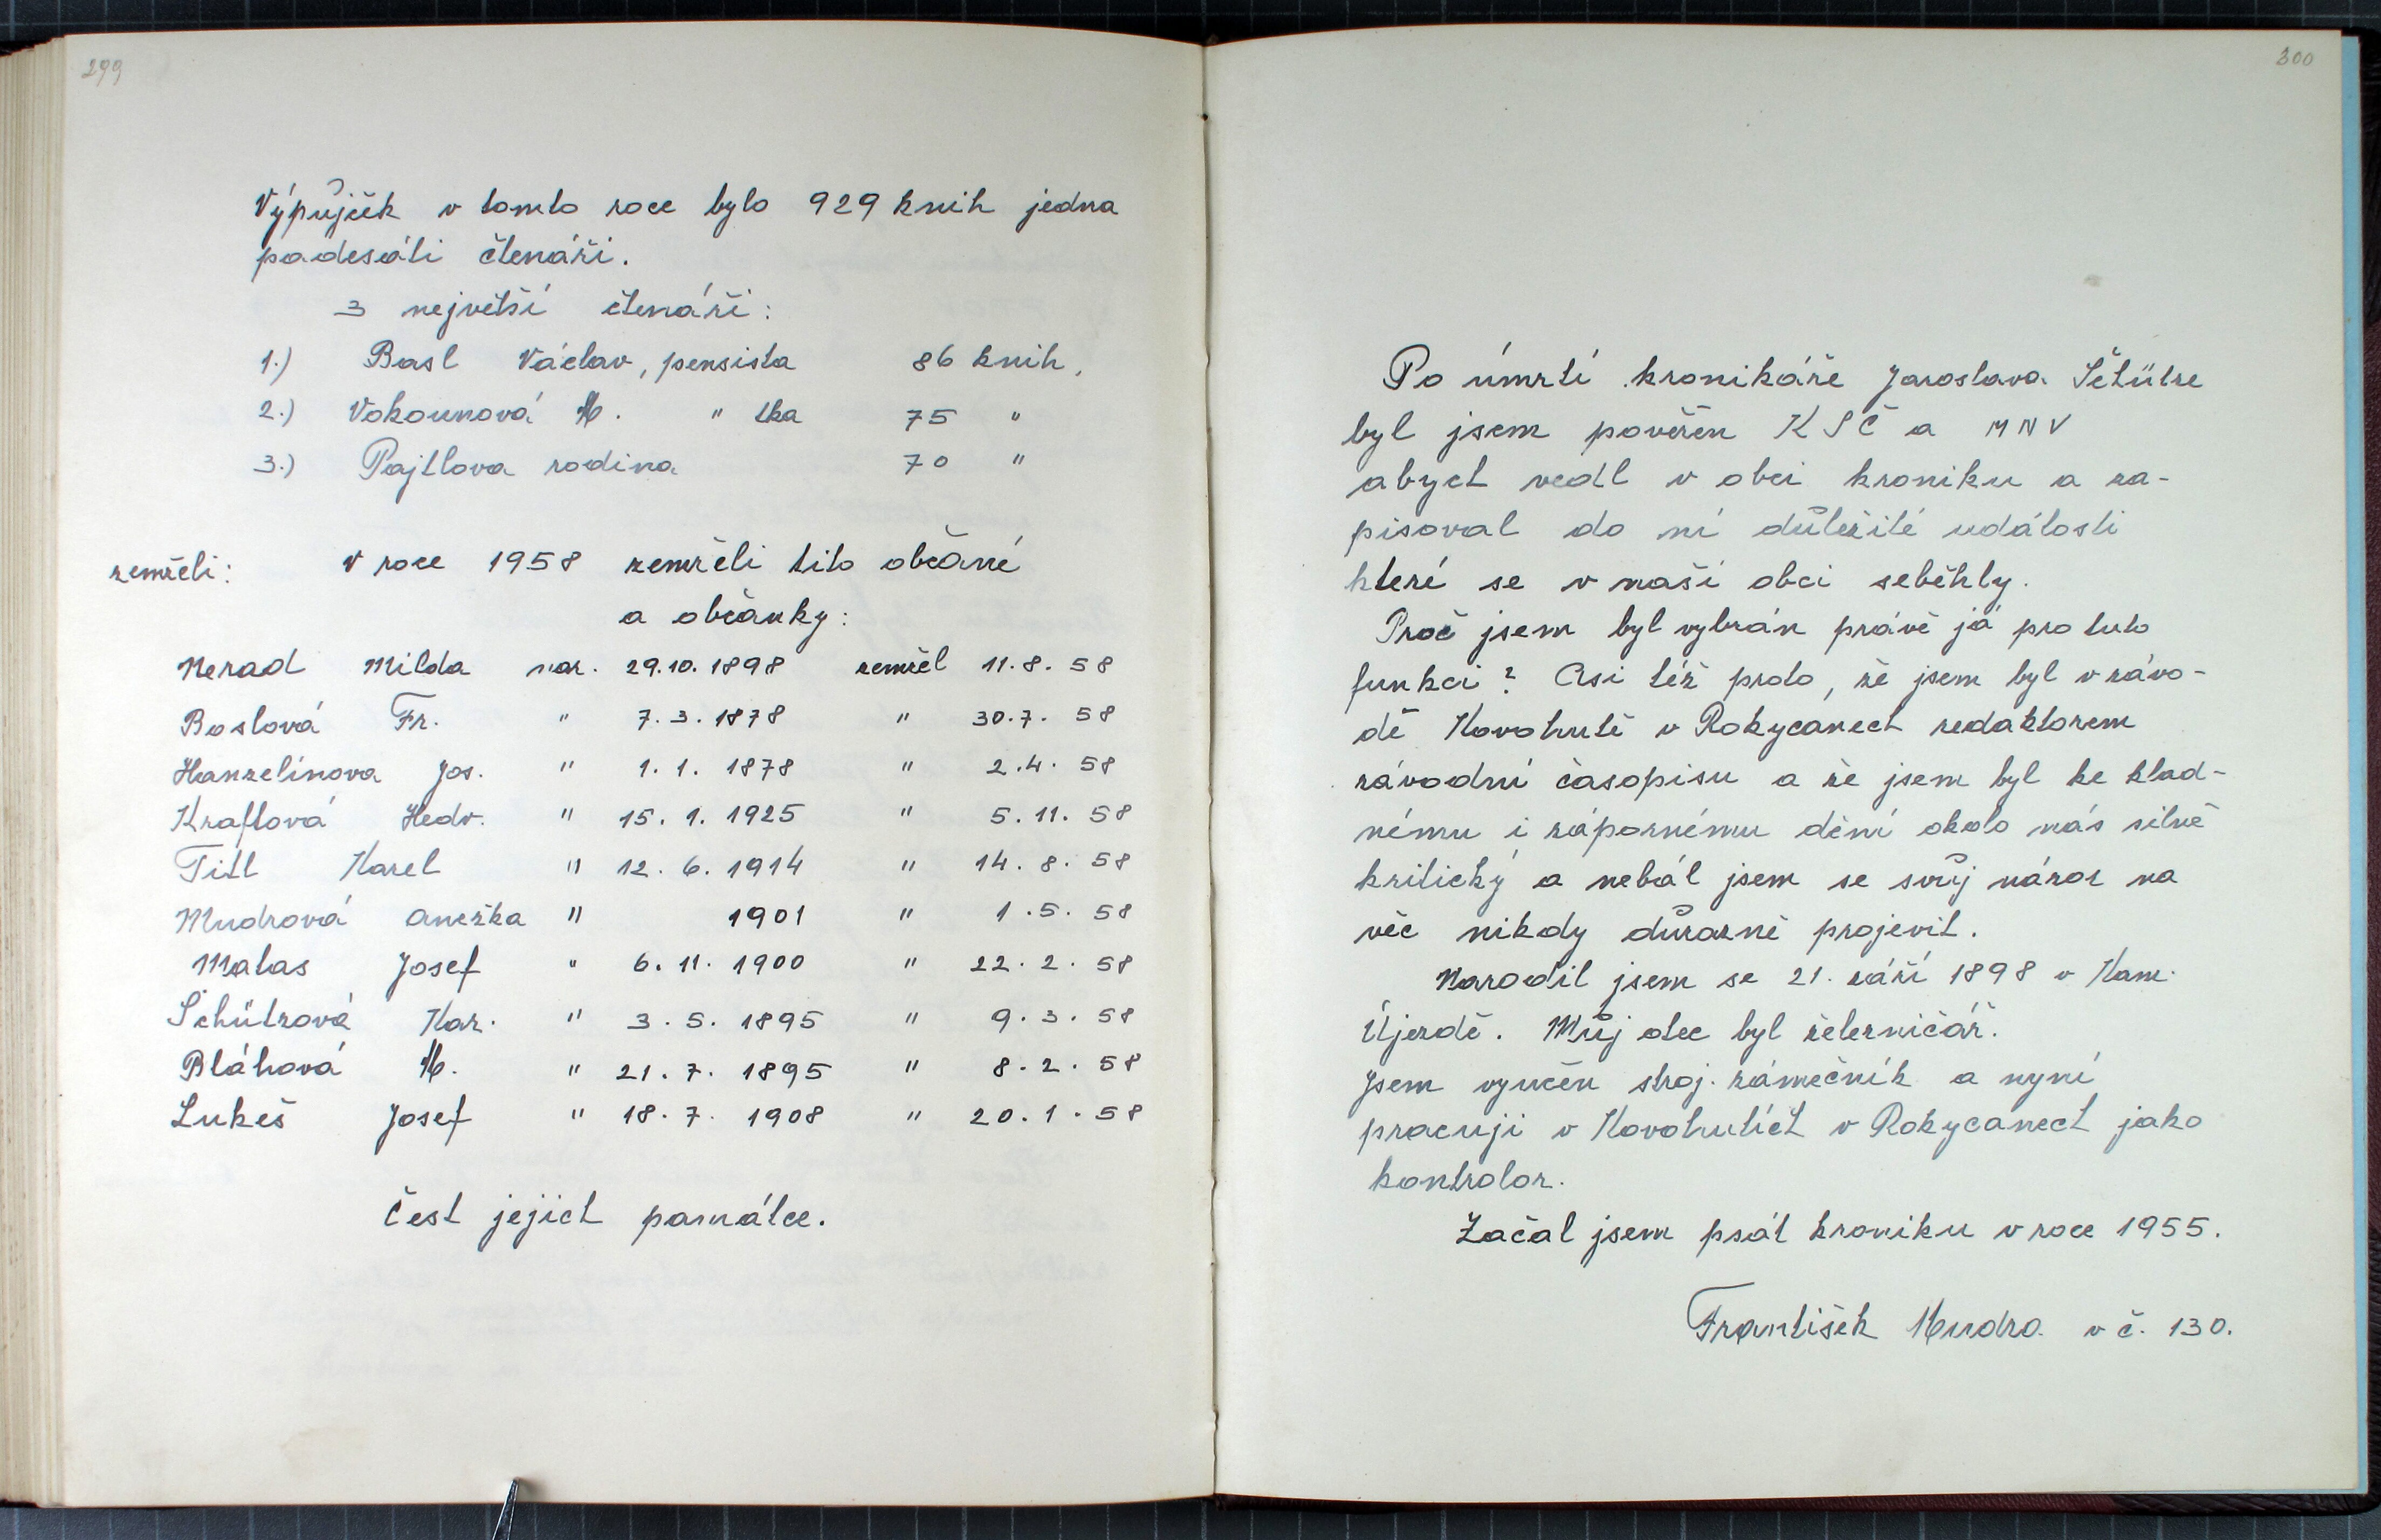 299
Výpůjček v tomto roce bylo 929 knih jedna
padesáti čtenáři.
3 největší čtenáři:
1.) Basl Václav, pensista 86 knih,
2.) Vokounová M. " tka 75 "
3.) Pajtlova rodina 70 "
zemřeli: V roce 1958 zemřeli tito občané
a občanky:
Nerad Milda nar. 29.10.1898 zemřel 11.8.58
Baslová Fr. " 7.3.1878 " 30.7.58
Hanzelínova Jos. " 1.1.1878 " 2.4.58
Kraftová Hedv. " 15.1.1925 " 5.11.58
Titl Karel " 12.6.1914 " 14.8.58
Mudrová Anežka " 1901 " 1.5.58
Matas Josef " 6.11.1900 " 22.2.58
Schützová Kar. " 3.5.1895 " 9.3.58
Bláhová M. " 21.7.1895 " 8.2.58
Lukeš Josef " 18.7.1908 " 20.1.58
Čest jejich památce.
300
Po úmrtí kronikáře Jaroslava
byl jsem pověřen KSČ a MNV
abych vedl v obci kroniku a za-
pisoval do ní důležité události
které se v naší obci seběhly.
Proč jsem byl vybrán právě já pro tuto
funkci? Asi též proto, že jsem byl v závo-
dě Kovohutě v Rokycanech redaktorem
závodní časopisu a že jsem byl ke klad-
nému i zápornému dění okolo nás silně
kritický a nebál jsem se svůj názor na
věc nikdy důrazně projevit.
Narodil jsem se 21. září 1898 v Kam.
Újezdě. Můj otec byl železničář.
Jsem vyučen stroj. zámečník a nyní
pracuji v Kovohutích v Rokycanech jako
kontrolor.
Začal jsem psát kroniku v roce 1955.
František Mudra v č. 130.